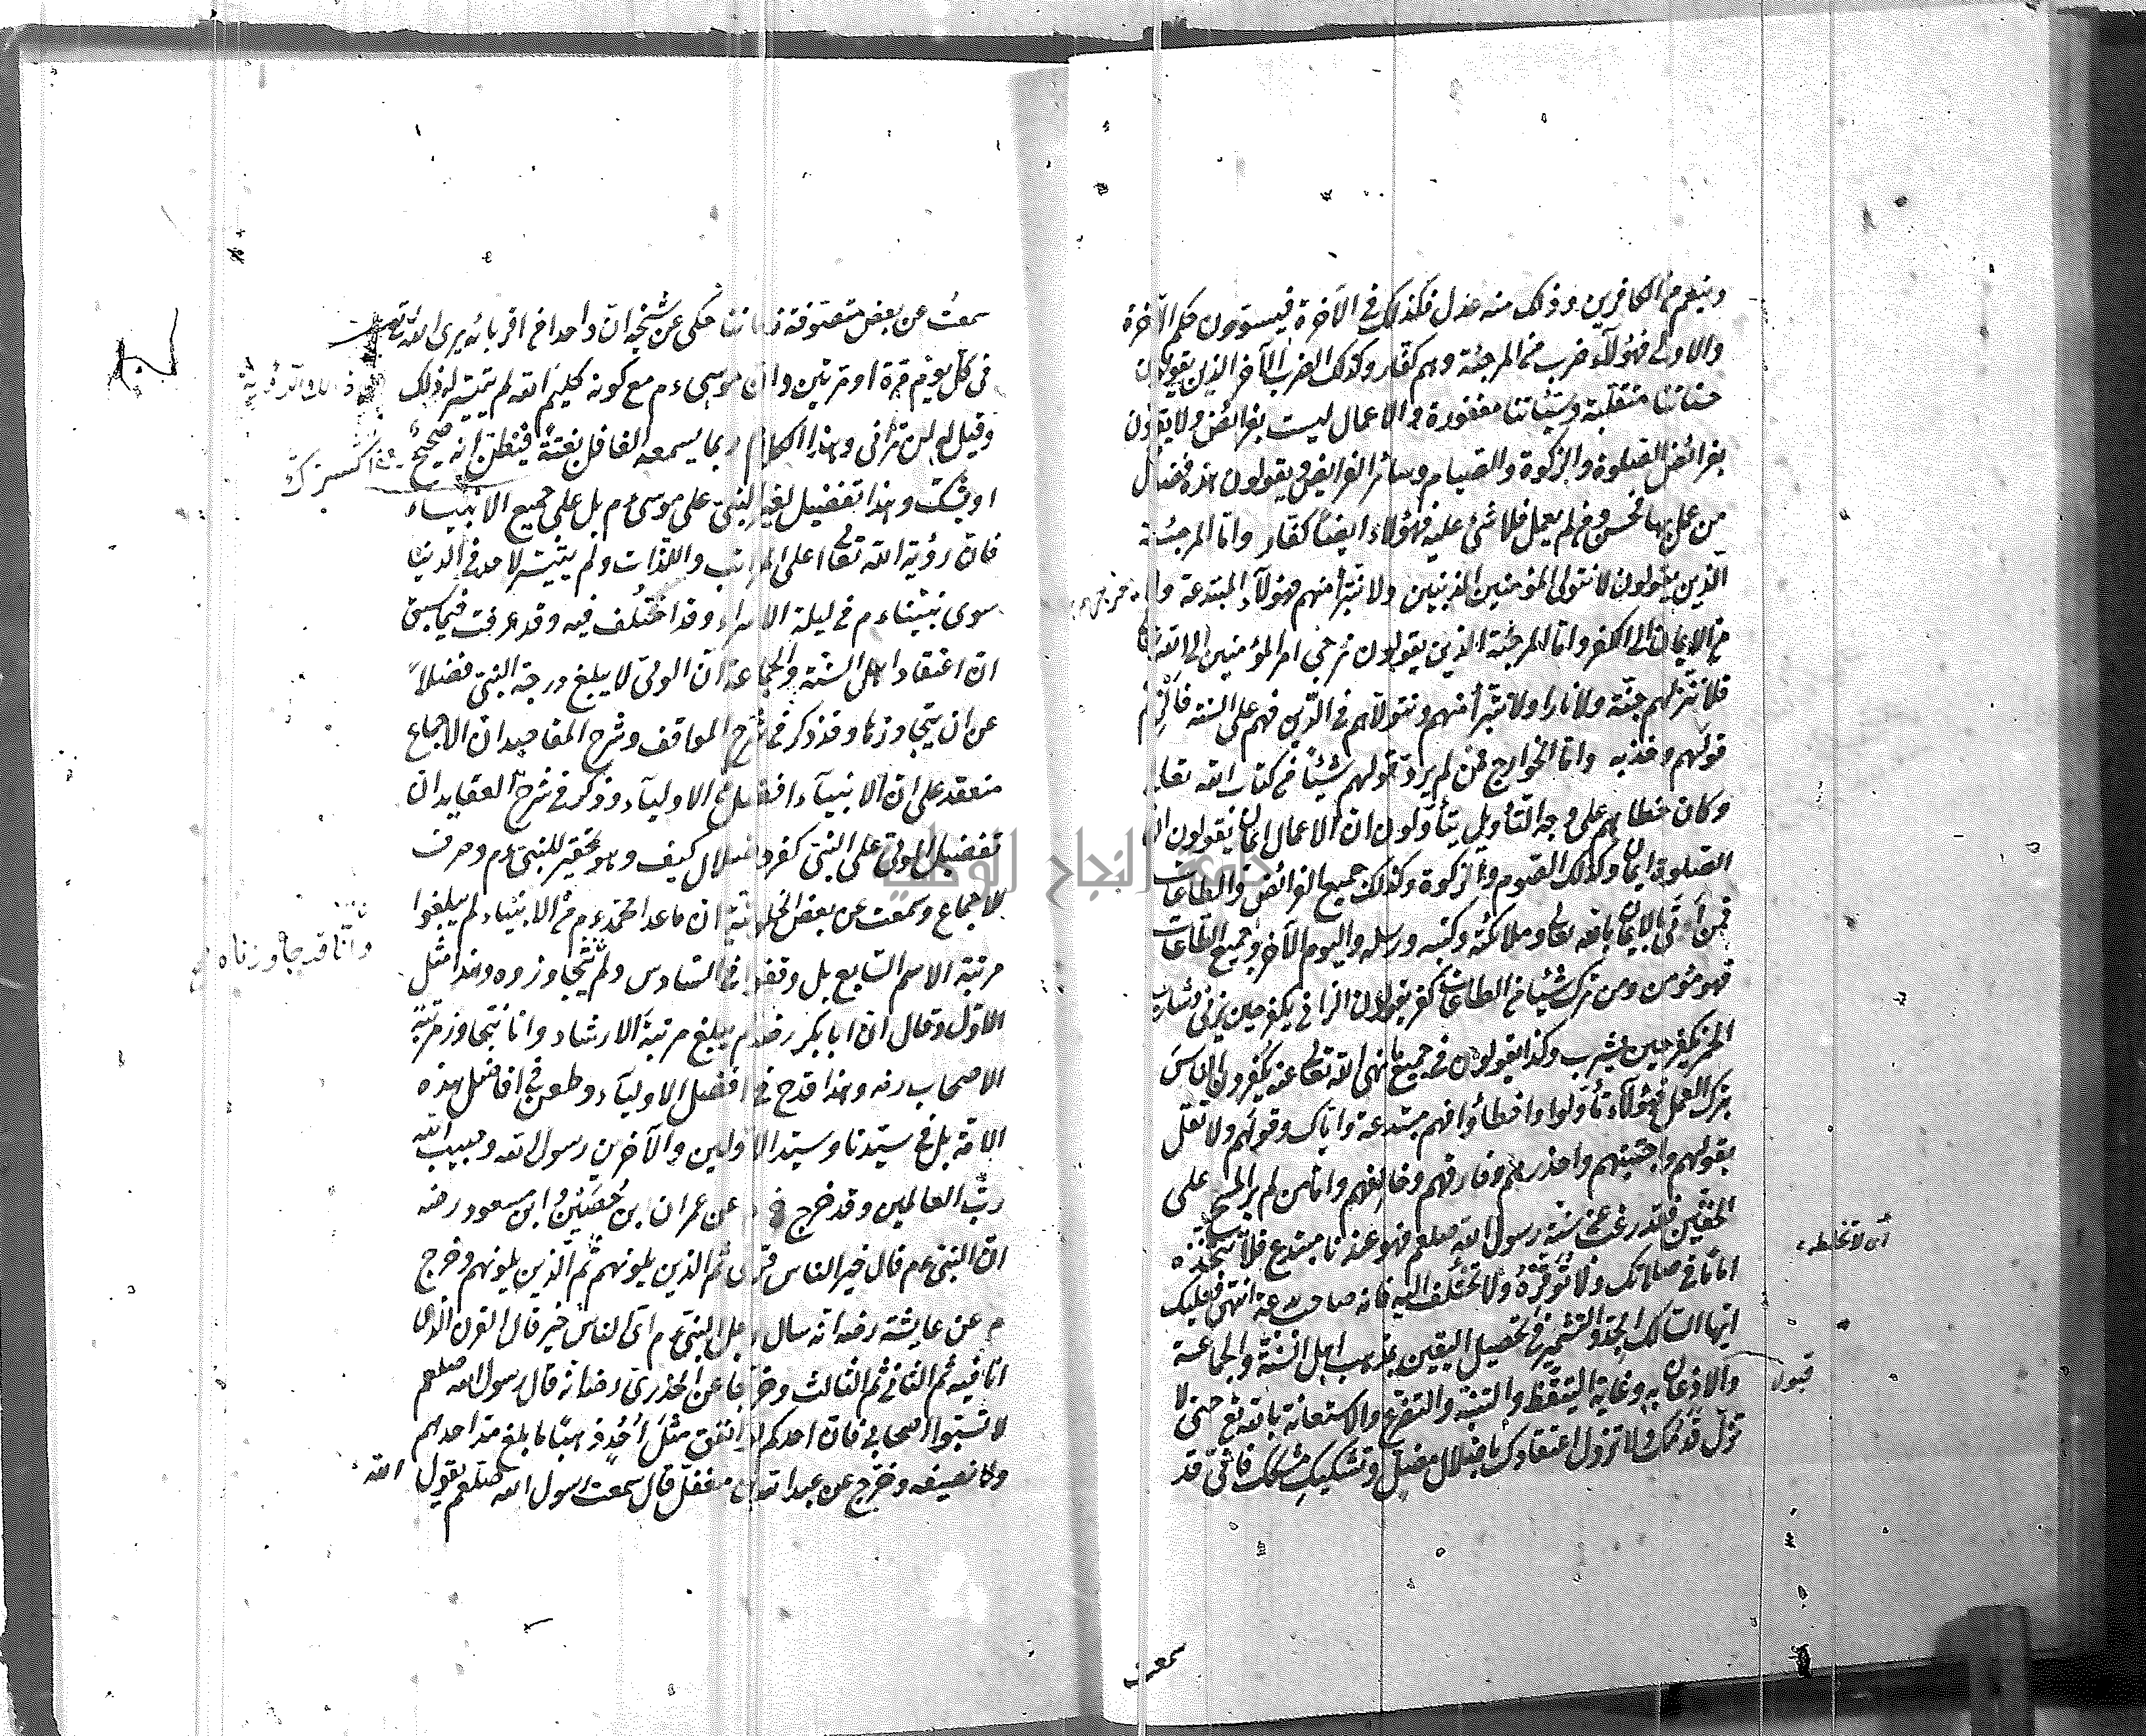 وينعم الكافرين وذلك منه عدل فكذلك في الآخرة فيستوون حكم الآخرة
والاولى فهؤلاء ضرب من المرجئة وهم كفار وكذلك الضرب الآخر الذين يقولون
حسناتنا متقبلة وسيئاتنا مغفورة والاعمال ليست بفرائض ولا يقرون
بفرائض الصلوة والزكوة والصيام وسائر الفرايض ويقولون هذه فضائل
من عمل بها فحسن ومن لم يعمل فلا شئ عليه فهؤلاء ايضا كفار واما المرجئة
الذين يقولون لا نتولى المؤمنين المذنبين ولا نتبرأ منهم فهؤلاء المبتدعة
من الايمان الى الكفر واما المرجئة الذين يقولون نرجئ امر المؤمنين الى الله تعالى
فلا ننزلهم جنة ولا نارا ولا نتبرأ منهم ونتولاهم في الدين فهم على السنة فالزم
قولهم وخذ به واما الخوارج فمن لم يرد قولهم شيئا من كتاب الله تعالى
وكان خطائهم على وجه التأويل يتأولون ان الاعمال ايمان يقولون ان
الصلوة ايمان وكذلك الصوم والزكوة وكذلك جميع الفرائض والطاعات
فمن أتى بالايمان بالله تعالى وملائكته وكتبه ورسله واليوم الآخر وجميع الطاعات
فهو مؤمن ومن ترك شيئا من الطاعات كفر يقولون الزاني يكفر حين يزني وشارب
الخمر يكفر حين يشرب وكذا يقولون في جميع ما نهى الله تعالى عنه يكفرون الناس
بترك العمل فهؤلاء تأولوا واخطأوا فهم مبتدعة واياك وقولهم ولا تقل
بقولهم واجتنبهم واحذرهم وفارقهم وخالفهم واما من لم ير المسح على
الخفين فقد رغب عن سنة رسول الله صلعم فهو عندنا مبتدع فلا تتخذه
اماما في صلاتك ولا توقره ولا تختلف اليه فانه صاحب بدعة انتهى فعليك
ايها السالك الجد والتشمير في تحصيل اليقين بمذهب اهل السنة والجماعة
والاذعان به وغاية التيقظ والتنبه والتضرع والاستعانة بالله تع حتى لا
تزل قدمك ولا تزول اعتقادك باضلال مضل وتشكيك مشكك فاني قد
أى لا تخلطه
قبولا
سمعت
سمعت عن بعض متصوفة زماننا حكى عن شيخه ان واحدا من اقربائه يرى الله تع
في كل يوم مرة او مرتين وان موسى ءم مع كونه كليم الله لم يتيسر له ذلك
وقيل له لن تراني وهذا الكلام ربما يسمعه الغافل بغتة فيظن انه صحيح
او يشك وهذا تفضيل لغير النبي على موسى ءم بل على جميع الانبياء
فان رؤية الله تعالى اعلى المراتب واللذات ولم يتيسر لاحد في الدنيا
سوى نبينا ءم في ليلة الاسراء وقد اختلف فيه وقد عرفت فيما سبق
ان اعتقاد اهل السنة والجماعة ان الولي لا يبلغ درجة النبي فضلا
عن ان يتجاوزها وقد ذكر في شرح المواقف وشرح المقاصد ان الاجماع
منعقد على ان الانبياء افضل من الاولياء وذكر في شرح العقايد ان
تفضيل الولي على النبي كفر وضلال كيف وهو تحقير للنبي ءم وخرق
للاجماع وسمعت عن بعض الخلوتية ان ما عدا محمد ءم من الانبياء لم يبلغوا
مرتبة الاسم السابع بل وقفوا في السادس ولم يتجاوزوه وهذا مثل
الاول وقال ان ابا بكر رضه لم يبلغ مرتبة الارشاد وانا نتجاوز مرتبة
الاصحاب رضه وهذا قدح في افضل الاولياء وطعن في افاضل هذه
الامة بل في سيدنا وسيد الاولين والآخرين رسول الله وحبيب
رب العالمين وقد خرج عن عمران بن حصين وابن مسعود رضه
ان النبي ءم قال خير الناس قرني ثم الذين يلونهم ثم الذين يلونهم وخرج
م عن عايشة رضها انه سال رجل النبي ءم اى الناس خير قال القرن الذى
انا فيه ثم الثاني ثم الثالث وخرجا عن الخدرى رضه انه قال رسول الله صلعم
لا تسبوا اصحابي فان احدكم لو انفق مثل احد ذهبا ما بلغ مد احدهم
ولا نصيفه وخرج عن عبد الله بن مغفل قال سمعت رسول الله صلعم يقول الله
وانا قد جاوزناه
جامعة النجاح الوطنية